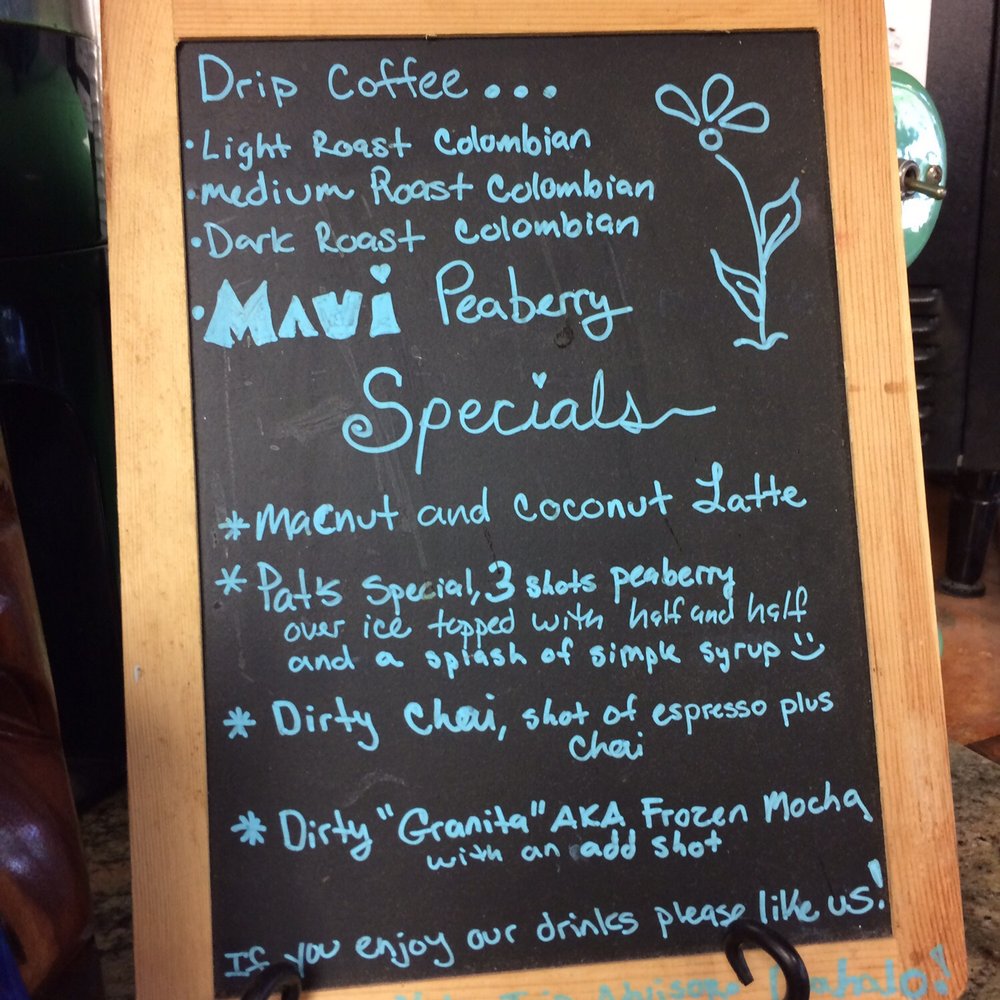 Drip Coffee...
• Light Roast Colombian
• medium Roast Colombian
• Dark Roast Colombian
• MAUi Peaberry
Specials
* macnut and coconut Latte
* Pat's Special, 3 shots peaberry
over ice topped with half and half
and a splash of simple syrup
* Dirty Chai, shot of espresso plus
Chai
* Dirty "Granita" AKA Frozen Mocha
with an add shot
If you enjoy our drinks please like us!
Trip Advisor Mahalo!